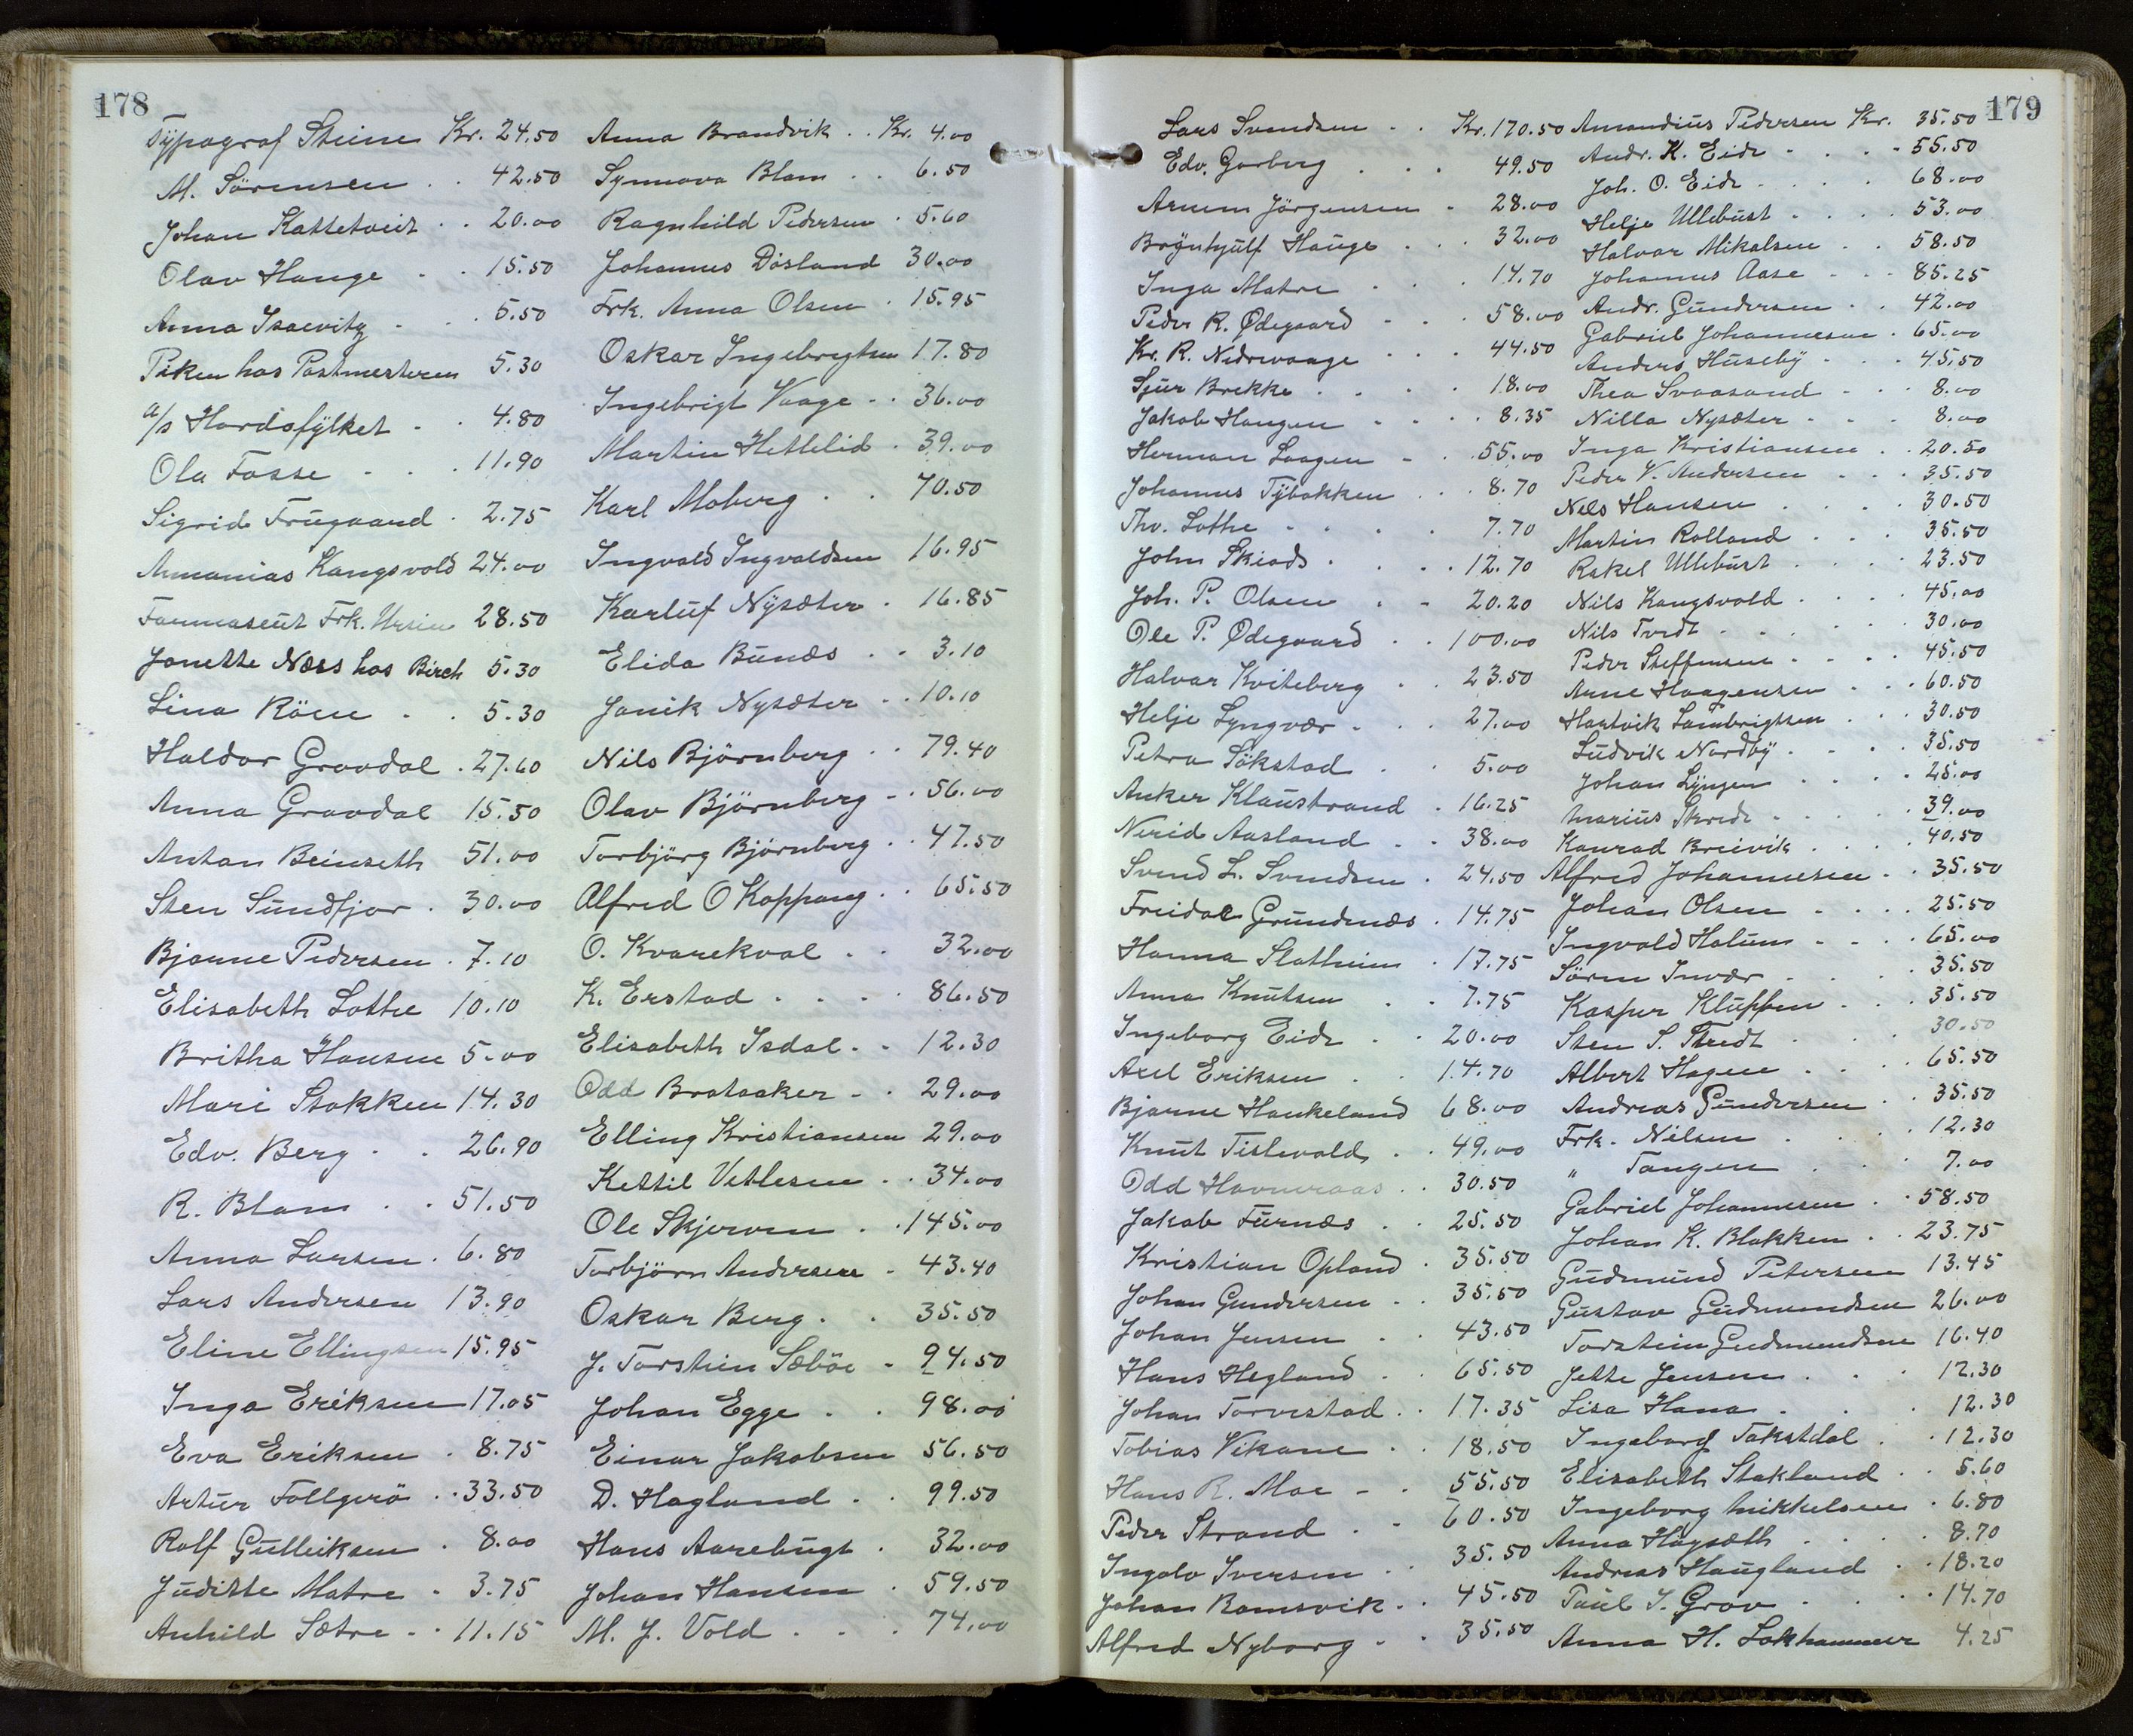 178
Typograf Steine Kr. 24.50
M. Sörensen . . 42.50
Johan Kattetveit . . 20.00
Olav Hauge . . 15.50
Anna Isaevitz . . 5.50
Piken hos Postmesteren 5.30
A/s Hordafylket . . 4.80
Ola Fosse . . . 11.90
Sigrid Frugaard . 2.75
Annanias Kangsvold 24.00
Farmaseut Frk. Ursin 28.50
Janette Næss hos Birch 5.30
Lina Röen . . 5.30
Haldor Gravdal . 27.60
Anna Gravdal 15.50
Anton Beinseth 51.00
Sten Sundfjor . 30.00
Bjarne Pedersen . 7.10
Elisabeth Lothe 10.10
Britha Hansen 5.00
Mari Stokken 14.30
Edv. Berg . . 26.90
R. Blam . . 51.50
Anna Larsen . 6.80
Lars Andersen 13.90
Eline Ellingsen 15.95
Inga Eriksen 17.05
Eva Eriksen . 8.75
Artur Follgerö . . 33.50
Rolf Gulleiksen . 8.00
Juditte Matre . 3.75
Anhild Sætre . . 11.15
Anna Brandvik . . Kr. 4.00
Synnøva Blam . . 6.50
Ragnhild Pedersen . 5.60
Johannes Døsland 30.00
Frk. Anna Olsen . 15.95
Oskar Ingebrigtsen 17.80
Ingebrigt Vaage . . 36.00
Martin Hettelid . 39.00
Karl Moberg . . 70.50
Ingvald Ingvaldsen 16.95
Karluf Nysæter . 16.85
Elida Bunæs . . 3.10
Janik Nysæter . . 10.10
Nils Björnberg . . 79.40
Olav Björnberg . . 56.00
Torbjörg Björnberg . . 47.50
Alfred O Koppang . . 65.50
O. Kvarekval . . 32.00
K. Erstad . . . . 86.50
Elisabeth Isdal . . 12.30
Odd Brataaker . . 29.00
Elling Kristiansen 29.00
Kettil Vetlesen . . 34.00
Ole Skjerven . . 145.00
Torbjörn Andersen . 43.40
Oskar Berg . . 35.50
J. Torstein Sæböe . 94.50
Johan Egge . . 98.00
Einar Jakobsen 56.50
D. Hagland . . 99.50
Hans Aarebugt . 32.00
Johan Hansen . 59.50
M. J. Vold . . . 74.00
179
Lars Svendsen . . Kr. 170.50
Edv. Garberg . . . 49.50
Arnem Jörgensen . 28.00
Brynhjulf Hauge . . . 32.00
Inga Matre . . . 14.70
Peder R. Ødegaard . . . 58.00
Kr. R. Nedrevaage . . . 44.50
Sjur Brekke . . . . 18.00
Jakob Haugen . . . . 8.35
Herman Laagen . . 55.00
Johannes Tybakken . . . 8.70
Thv. Lothe . . . . 7.70
John Skiads . . . . 12.70
Joh. P. Olsen . . 20.20
Ole P. Ødegaard . . 100.00
Halvar Kviteberg . . 23.50
Helje Lyngvær . . . 27.00
Petra Sökstad . . 5.00
Anker Klaustrand . 16.25
Nerid Aasland . . 38.00
Svend L. Svendsen . 24.50
Freidar Grundnæs . 14.75
Hanna Slatheim . 17.75
Anna Knutsen . . 7.75
Ingeborg Eide . . 20.00
Axel Eriksen . . 14.70
Bjarne Haukeland 68.00
Knut Tislevold . . 49.00
Odd Havneraas . . 30.50
Jakob Furnæs . . 25.50
Kristian Opland . 35.50
Johan Gundersen . . 35.50
Johan Jensen . . 43.50
Hans Hegland . . 65.50
Johan Torvestad . . 17.35
Tobias Vikane . . 18.50
Hans R. Moe . . 55.50
Peder Strand . . 60.50
Ingolv Iversen . . 35.50
Johan Ramsvik . . 45.50
Alfred Nyborg . . 35.50
Amandius Pedersen Kr. 35.50
Andr. K. Eide . . . . 55.50
Joh. O. Eide . . . . 68.00
Helje Ullebust . . . . 53.00
Halvar Mikalsen . . 58.50
Johannes Aase . . . 85.25
Andr. Gundersen . . 42.00
Gabriel Johannesen . 65.00
Anders Huseby . . . 45.50
Thea Svaasand . . . 8.00
Nilla Nysæter . . . 8.00
Inga Kristiansen . . 20.50
Peder V. Andersen . . . 35.50
Nels Hansen . . . . 30.50
Martin Rolland . . . 35.50
Rakel Ullebust . . . . 23.50
Nils Kangsvold . . . . 45.00
Nils Tvedt . . . . . 30.00
Peder Steffensen . . . . 45.50
Arne Haagensen . . . 60.50
Hartvik Lambrigtsen . . . 30.50
Ludvik Nordby . . . . 35.50
Johan Lyngen . . . . 25.00
Marius Skrede . . . . . 39.00
Konrad Breivik . . . . 40.50
Alfred Johannesen . . 35.50
Johan Olsen . . . . 25.50
Ingvald Halum . . . . 65.00
Sörm Invær . . . . 35.50
Kasper Kluppen . . . 35.50
Sten S. Tredt . . . 30.50
Albert Hagen . . . . 65.50
Andreas Gundersen . . 35.50
Frk. Nilsen . . . . 12.30
" Tangen . . . 7.00
Gabriel Johannesen . . 58.50
Johan K. Blakken . . 23.75
Gudmund Petersen 13.45
Gustav Gudmundsen 26.00
Torstein Gudmundsen 16.40
Jette Jensen . . . 12.30
Lisa Hana . . . . 12.30
Ingeborg Takstdal . . 12.30
Elisabeth Stakland . . 5.60
Ingeborg Mikkelsen . 6.80
Anna Høgsæth . . . . 8.70
Andreas Haugland . . 18.20
Paul I. Grov . . . . 14.70
Anna H. Lokhammer 4.25